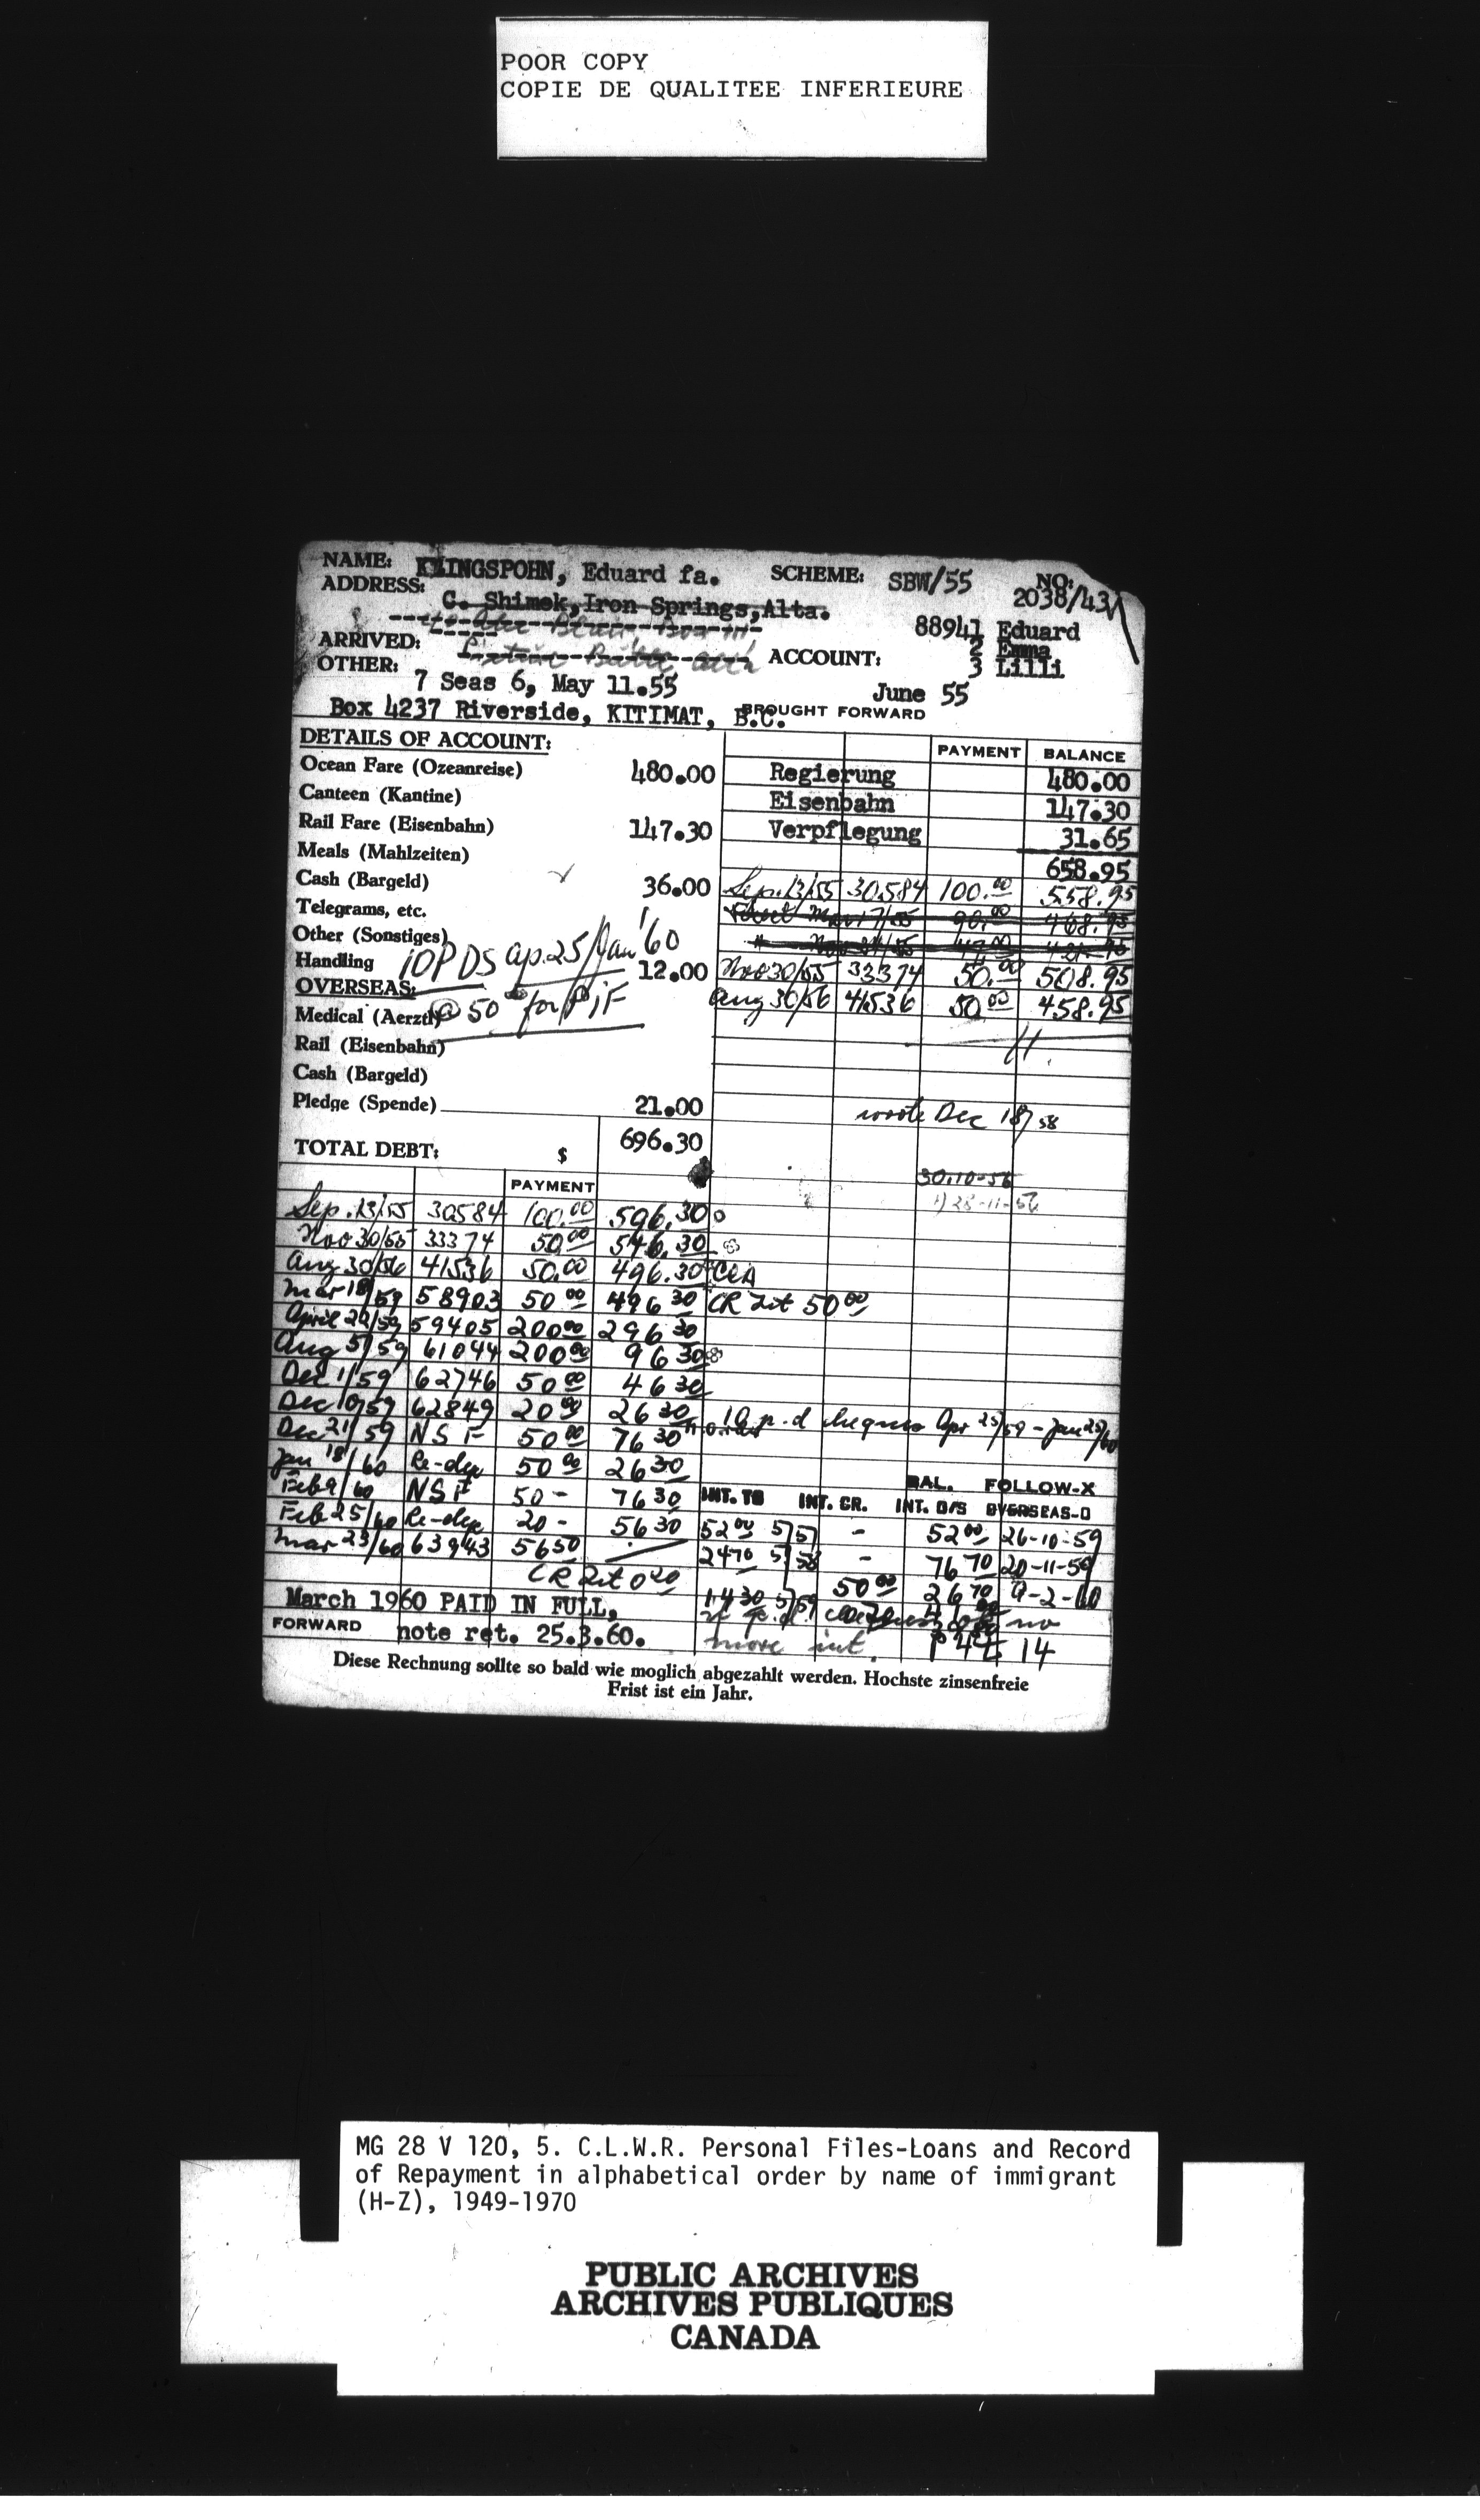 POOR COPY
COPIE DE QUALITEE INFERIEURE
NAME: KLINGSPOHN, Eduard fa. SCHEME: SBW/55 NO: 2038/43
ADDRESS: C. Shimek, Iron Springs, Alta.
88941 Eduard
2 Emma
3 Lilli
ARRIVED: ACCOUNT:
OTHER: 7 Seas 6, May 11.55 June 55
Box 4237 Riverside, KITIMAT, B.C. BROUGHT FORWARD
DETAILS OF ACCOUNT: PAYMENT BALANCE
Ocean Fare (Ozeanreise) 480.00 Regierung 480.00
Canteen (Kantine) Eisenbahn 147.30
Rail Fare (Eisenbahn) 147.30 Verpflegung 31.65
Meals (Mahlzeiten) 658.95
Cash (Bargeld) 36.00 Sep. 13/55 30584 100.00 558.95
Telegrams, etc. 90.00 468.95
Other (Sonstiges)
10 PDS ap. 25/Jan '60
Handling 12.00 Nov 30/55 33374 50.00 508.95
OVERSEAS: Aug 30/56 41536 50.00 458.95
Medical (Aerztl) @ 50 for PiF
Rail (Eisenbahn)
Cash (Bargeld)
Pledge (Spende) 21.00 wrote Dec 18/58
TOTAL DEBT: $ 696.30
30.10-56
PAYMENT 28-11-56
Sep. 13/55 30584 100.00 596.30
Nov 30/55 33374 50.00 546.30
Aug 30/56 41536 50.00 496.30
Mar 18/59 58903 50 00 496 30 CR Int 50 00
April 20/59 59405 200 00 296 30
Aug 5/59 61044 200 00 96 30
Dec 1/59 62746 50 00 46 30
Dec 10/59 62849 20 00 26 30 10 p.d cheques Apr 25/59 - Jan 25/60
Dec 21/59 NSF 50 00 76 30
Jan 18/60 Re-dep 50 00 26 30 BAL. FOLLOW-X
Feb 9/60 NSF 50 - 76 30 INT. TO INT. CR. INT. O/S OVERSEAS-O
Feb 25/60 Re-dep 20 - 56 30 52 00 5/57 - 52 00 26-10-59
Mar 23/60 63943 56 50 24 70 5/58 - 76 70 20-11-59
CR Int 0 20 14 30 5/59 50 00 26 70 9-2-60
March 1960 PAID IN FULL, no
FORWARD note ret. 25.3.60. more int. 14
Diese Rechnung sollte so bald wie moglich abgezahlt werden. Hochste zinsenfreie
Frist ist ein Jahr.
MG 28 V 120, 5. C.L.W.R. Personal Files-Loans and Record
of Repayment in alphabetical order by name of immigrant
(H-Z), 1949-1970
PUBLIC ARCHIVES
ARCHIVES PUBLIQUES
CANADA